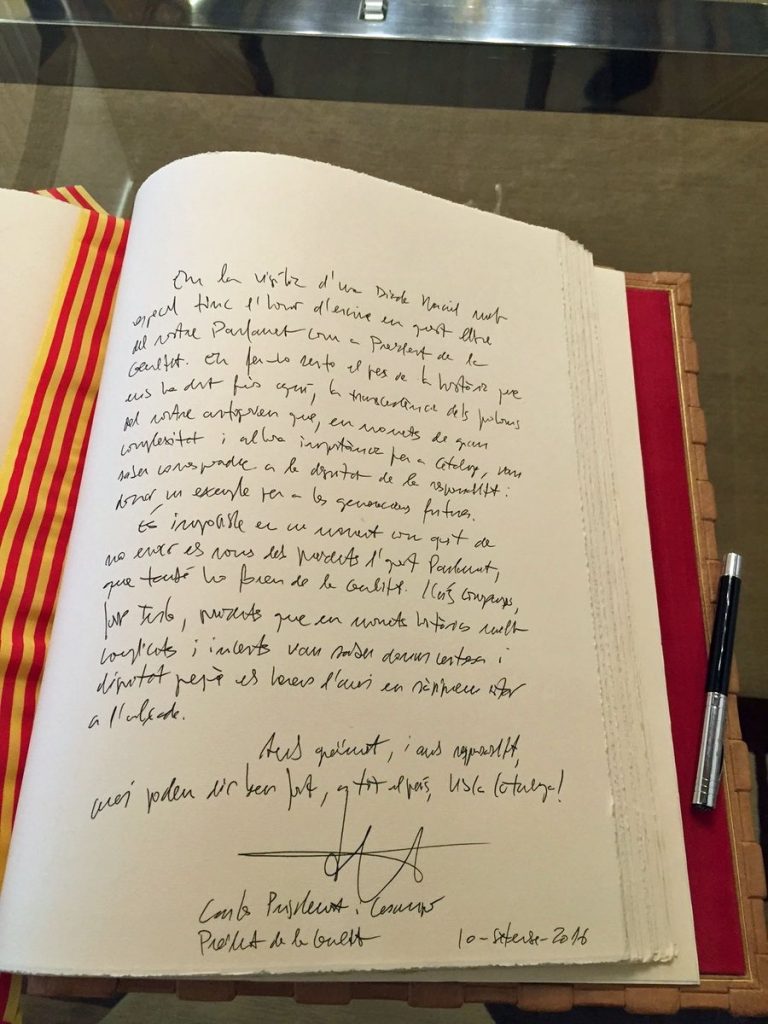 En la vigília d'una Diada Nacional molt
especial tinc l'honor d'escriure en aquest llibre
del nostre Parlament com a President de la
Generalitat. En fer-ho sento el pes de la història que
ens ha dut fins aquí, la transcendència dels
del nostre autogovern que, en moments de gran
complexitat i alhora importància per a Catalunya, van
saber correspondre a la dignitat de la responsabilitat i
donar un exemple per a les generacions futures.
És impossible en un moment com aquest de
no evocar els noms dels presidents d'aquest Parlament,
que també ho foren de la Generalitat. Lluís Companys,
Josep Irla, presidents que en moments històrics molt
complicats i incerts van saber donar certesa i
dignitat perquè els hereus d'avui en siguem
a l'alçada.
Amb , i amb responsabilitat,
avui podem dir ben fort, a tot el país, Visca Catalunya!
Carles Puigdemont i Casamajó
President de la Generalitat 10-setembre-2016